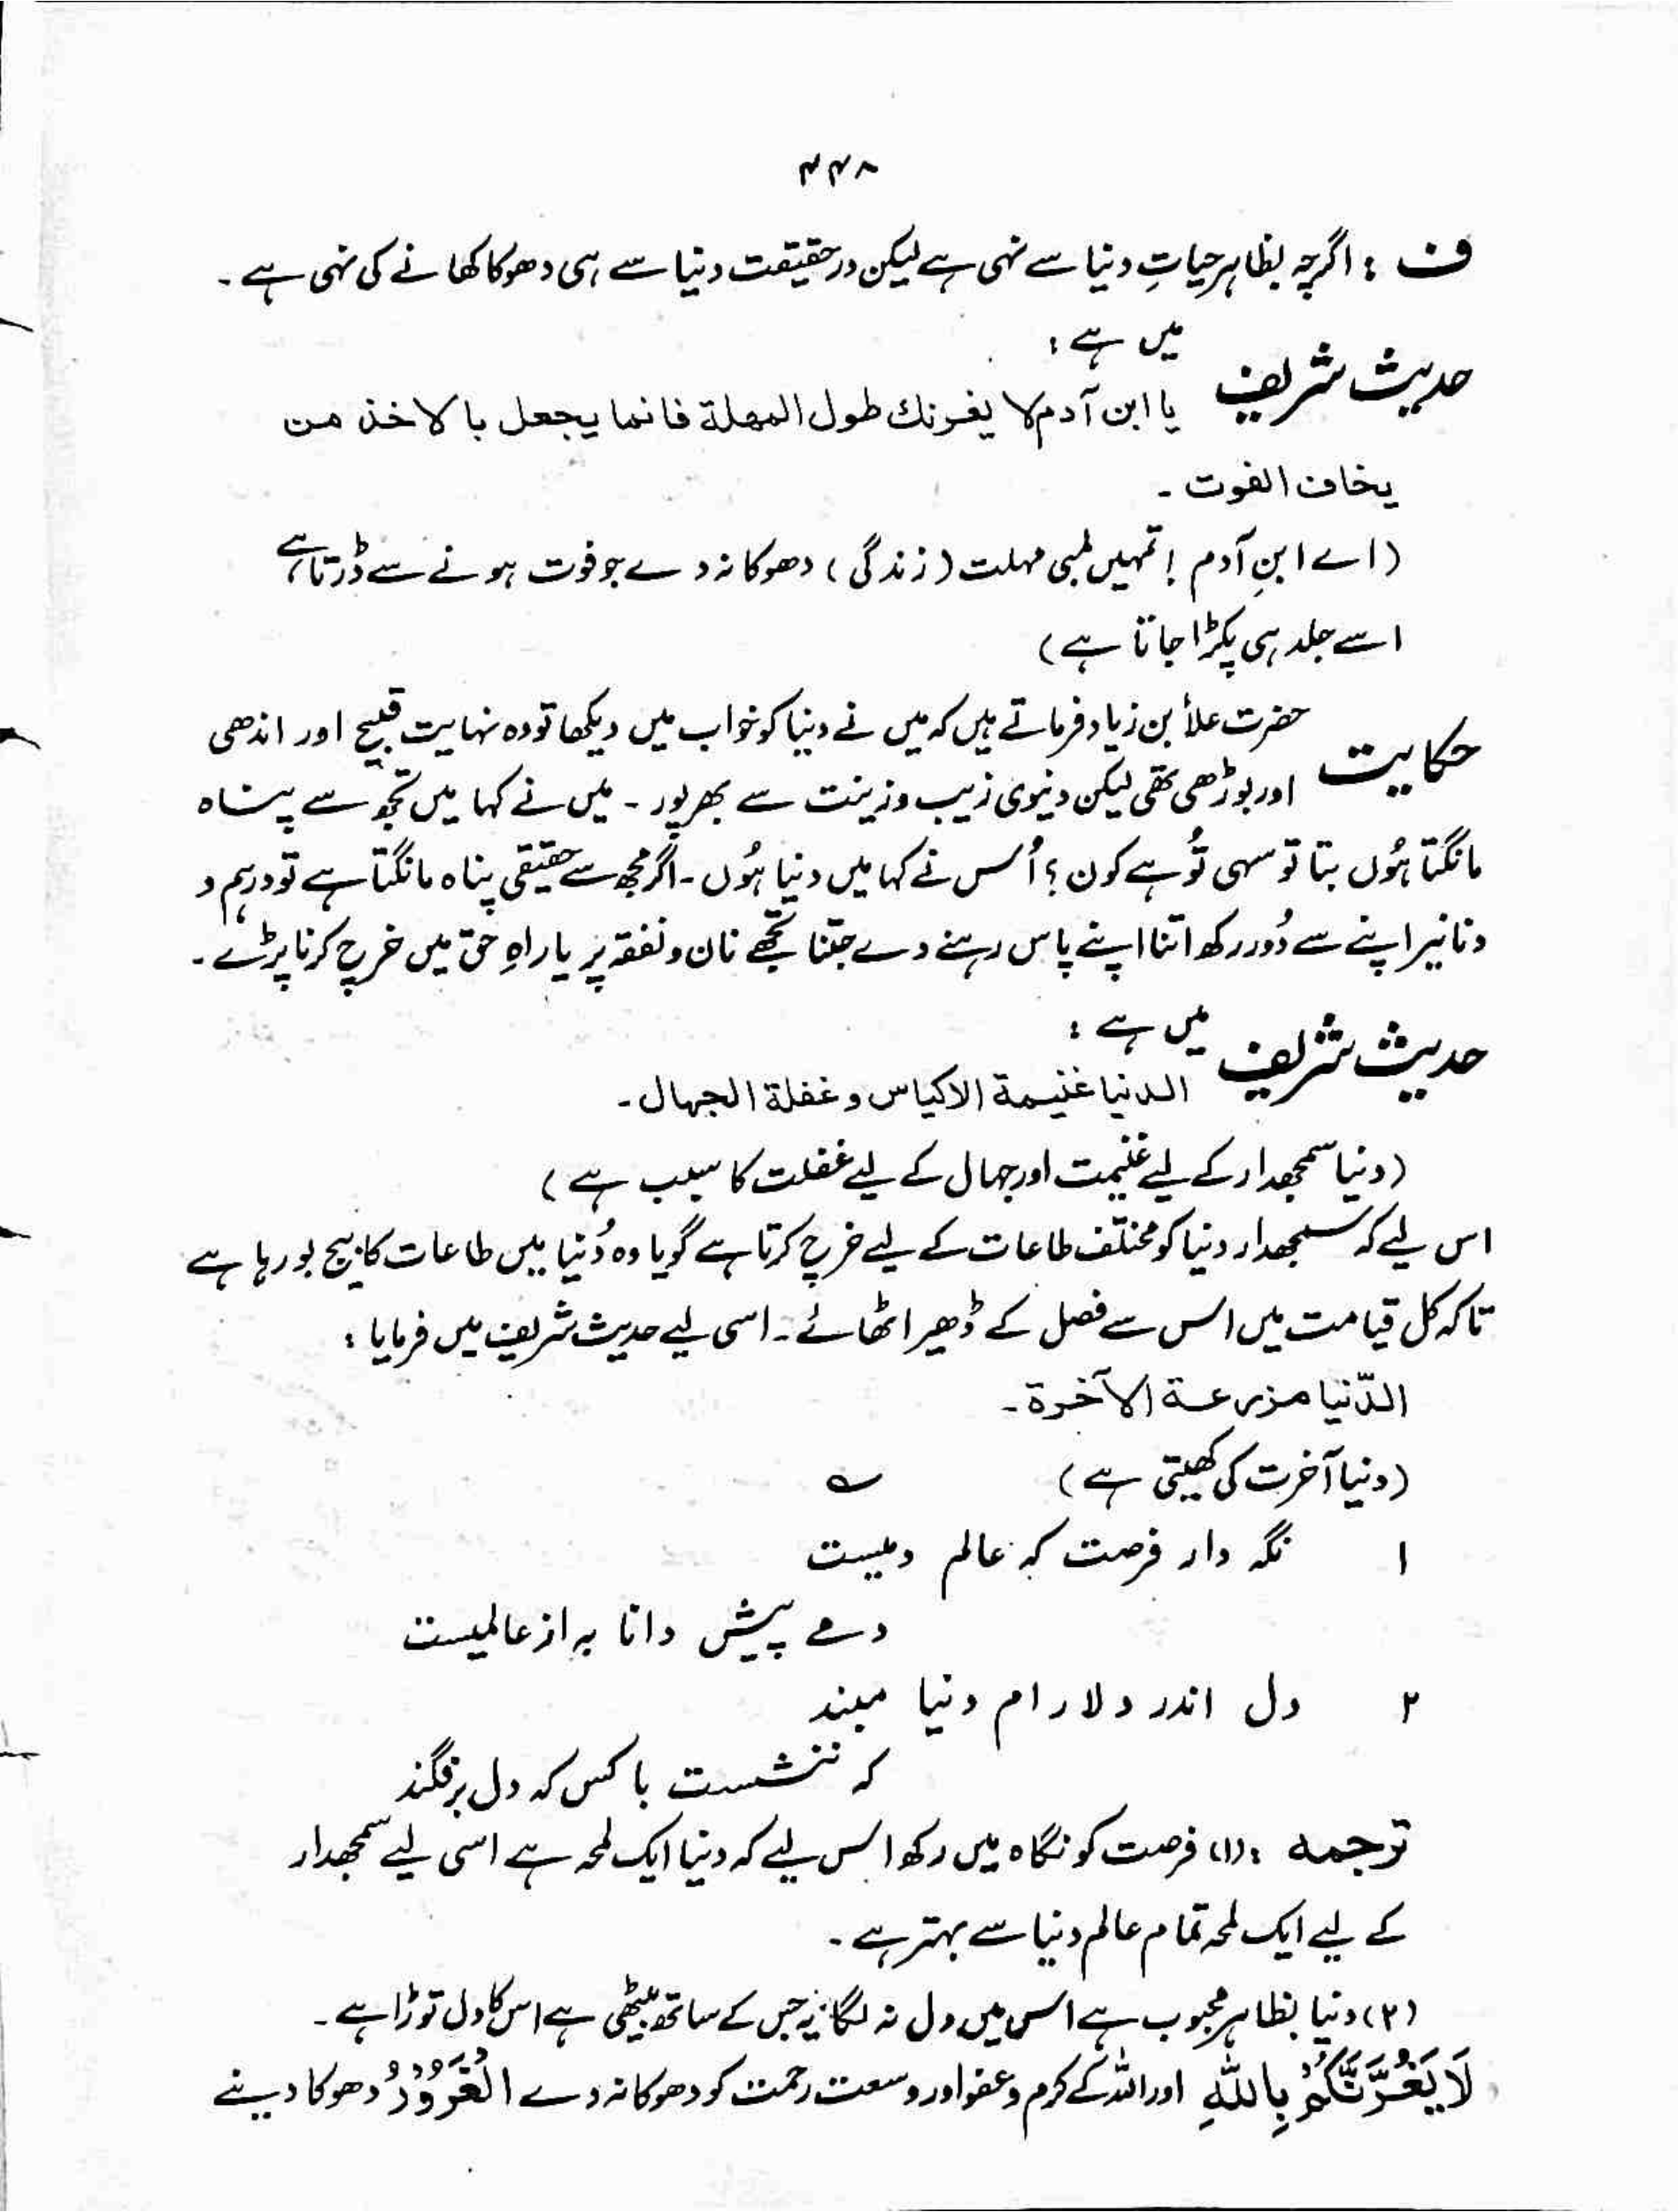 ۴۴۸
ف : اگرچہ بظاہر حیاتِ دنیا سے نہی ہے لیکن درحقیقت دنیا سے ہی دھوکا کھانے کی نہی ہے۔
حدیث شریف میں ہے :
یا ابن آدم لا یغرنك طول المهلة فانما یجعل بالاخذ من
یخاف الفوت۔
(اے ابنِ آدم ! تمہیں لمبی مہلت (زندگی) دھوکا نہ دے جو فوت ہونے سے ڈرتا ہے
اسے جلد ہی پکڑا جاتا ہے)
حکایت حضرت علاء بن زیاد فرماتے ہیں کہ میں نے دنیا کو خواب میں دیکھا تو وہ نہایت قبیح اور اندھی
اور بوڑھی تھی لیکن دنیوی زیب و زینت سے بھرپور۔ میں نے کہا میں تجھ سے پناہ
مانگتا ہُوں بتا تو سہی تُو ہے کون ؟ اُس نے کہا میں دنیا ہُوں۔ اگر مجھ سے حقیقی پناہ مانگتا ہے تو درہم و
دنانیر اپنے سے دُور رکھ اتنا اپنے پاس رہنے دے جتنا تجھے نان و نفقہ پر یا راہِ حق میں خرچ کرنا پڑے۔
حدیث شریف میں ہے :
الدنیا غنیمة الاکیاس و غفلة الجهال۔
(دنیا سمجھدار کے لیے غنیمت اور جہال کے لیے غفلت کا سبب ہے)
اس لیے کہ سمجھدار دنیا کو مختلف طاعات کے لیے خرچ کرتا ہے گویا وہ دُنیا میں طاعات کا بیج بو رہا ہے
تاکہ کل قیامت میں اس سے فصل کے ڈھیر اٹھائے۔ اسی لیے حدیث شریف میں فرمایا :
الدّنیا مزرعة الآخرة۔
(دنیا آخرت کی کھیتی ہے) ؎
۱ نگہ دار فرصت کہ عالم دمیست
دمے پیش دانا بہ از عالمیست
۲ دل اندر دلارام دنیا مبند
کہ ننشست با کس کہ دل بر نگند
ترجمہ : (۱) فرصت کو نگاہ میں رکھ اس لیے کہ دنیا ایک لمحہ ہے اسی لیے سمجھدار
کے لیے ایک لمحہ تمام عالم دنیا سے بہتر ہے۔
(۲) دنیا بظاہر محبوب ہے اس میں دل نہ لگا یہ جس کے ساتھ بیٹھی ہے اس کا دل توڑا ہے۔
لَا یَغُرَّنَّکُمْ بِاللّٰهِ اور اللہ کے کرم و عفو اور وسعت رحمت کو دھوکا نہ دے الْغَرُوْرُ دھوکا دینے